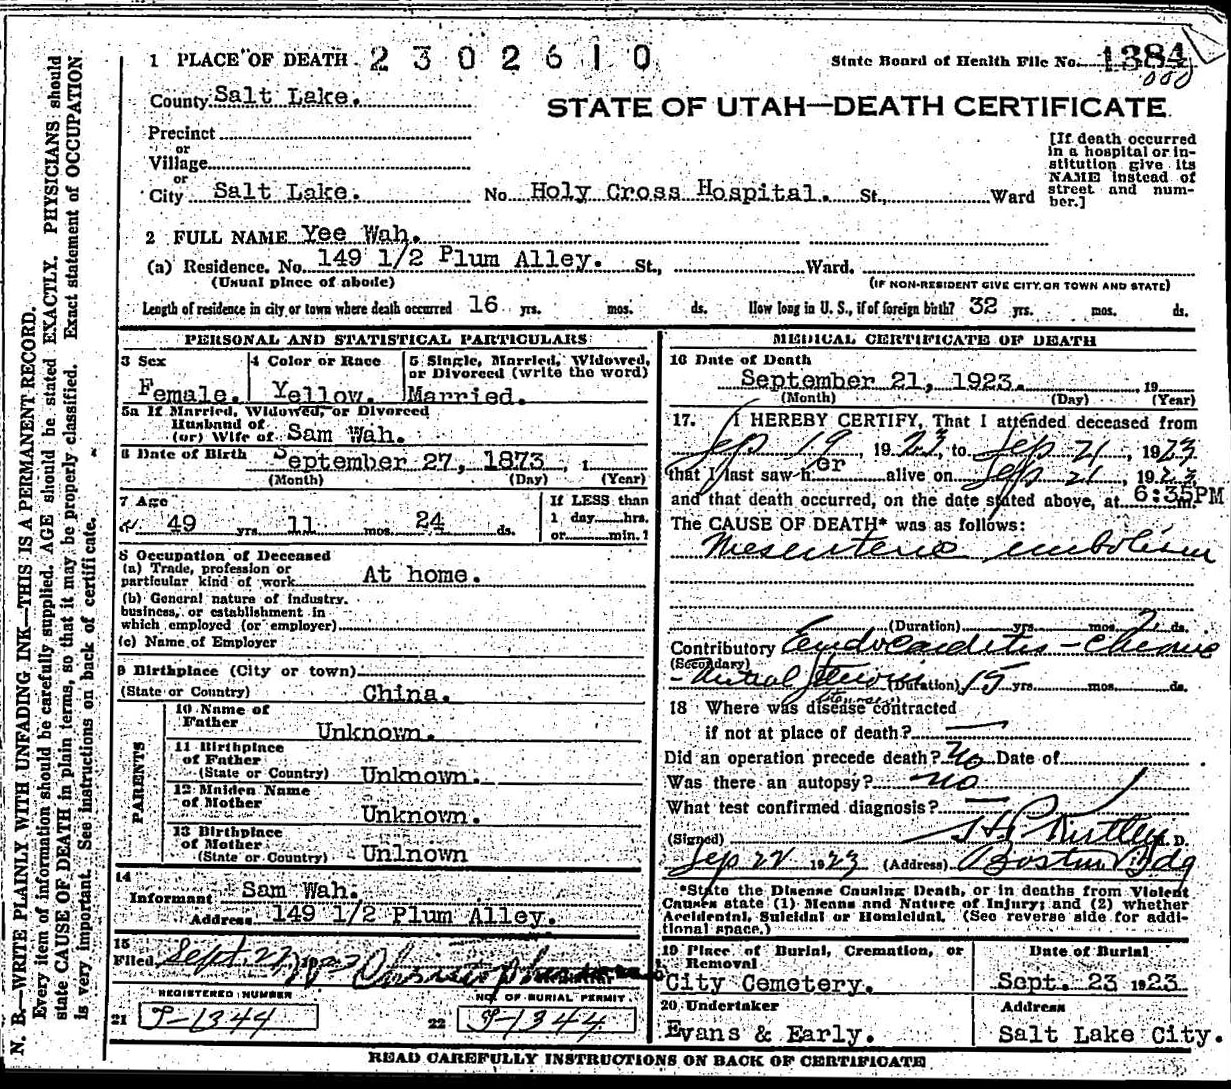 1 PLACE OF DEARTH 2 3 0 2 6 1 0
State Board of Health File No. 1384
000
County Salt Lake.
STATE OF UTAH—DEATH CERTIFICATE
Precinct
or
Village
or
City Salt Lake. No. Holy Cross Hospital. St., Ward
[If death occurred
in a hospital or in-
stitution give its
NAME instead of
street and num-
ber.]
2 FULL NAME Yee Wah.
(a) Residence. No. 149 1/2 Plum Alley. St., Ward.
(Usual place of abode) (IF NON-RESIDENT GIVE CITY OR TOWN AND STATE)
Length of residence in city or town where death occurred 16 yrs. mos. ds. How long in U. S., if of foreign birth? 32 yrs. mos. ds.
PERSONAL AND STATISTICAL PARTICULARS
3 Sex 4 Color or Race 5 Single, Married, Widowed,
or Divorced (write the word)
Female. Yellow. Married.
5a If Married, Widowed, or Divorced
Husband of
(or) Wife of Sam Wah.
6 Date of Birth September 27, 1873 , 1
(Month) (Day) (Year)
7 Age If LESS than
49 yrs. 11 mos. 24 ds. 1 day hrs.
or min.?
8 Occupation of Deceased
(a) Trade, profession or
particular kind of work At home.
(b) General nature of industry,
business, or establishment in
which employed (or employer)
(c) Name of Employer
9 Birthplace (City or town)
(State or Country) China.
PARENTS
10 Name of
Father Unknown.
11 Birthplace
of Father
(State or Country) Unknown.
12 Maiden Name
of Mother Unknown.
13 Birthplace
of Mother
(State or Country) Unlnown
14
Informant Sam Wah.
Address 149 1/2 Plum Alley.
15
Filed Sept. 22
REGISTERED NUMBER NO. OF BURIAL PERMIT
21 S-1344 22 S-1344
MEDICAL CERTIFICATE OF DEATH
16 Date of Death
September 21, 1923. 19
(Month) (Day) (Year)
17. I HEREBY CERTIFY, That I attended deceased from
Sep 19, 1923, to Sep 21, 1923
that I last saw h er alive on Sep 21, 1923
and that death occurred, on the date stated above, at 6:35PM m.
The CAUSE OF DEATH* was as follows:
Mesenteric embolism
(Duration) yrs. mos. 2 ds.
Contributory Endocarditis - Chronic
(Secondary)
- Mitral Stenosis (Duration) 15 yrs. mos. ds.
Stenosis
18 Where was disease contracted
if not at place of death? —
Did an operation precede death? No Date of
Was there an autopsy? no
What test confirmed diagnosis? —
(Signed) M. D.
Sep 22 1923 (Address) Boston Bdg
*State the Disease Causing Death, or in deaths from Violent
Causes state (1) Means and Nature of Injury; and (2) whether
Accidental, Suicidal or Homicidal. (See reverse side for addi-
tional space.)
19 Place of Burial, Cremation, or Date of Burial
Removal
City Cemetery. Sept. 23 1923
20 Undertaker Address
Evans & Early. Salt Lake City.
READ CAREFULLY INSTRUCTIONS ON BACK OF CERTIFICATE
N. B.—WRITE PLAINLY WITH UNFADING INK—THIS IS A PERMANENT RECORD.
Every item of information should be carefully supplied. AGE should be stated EXACTLY. PHYSICIANS should
state CAUSE OF DEATH in plain terms, so that it may be properly classified. Exact statement of OCCUPATION
is very important. See instructions on back of certificate.